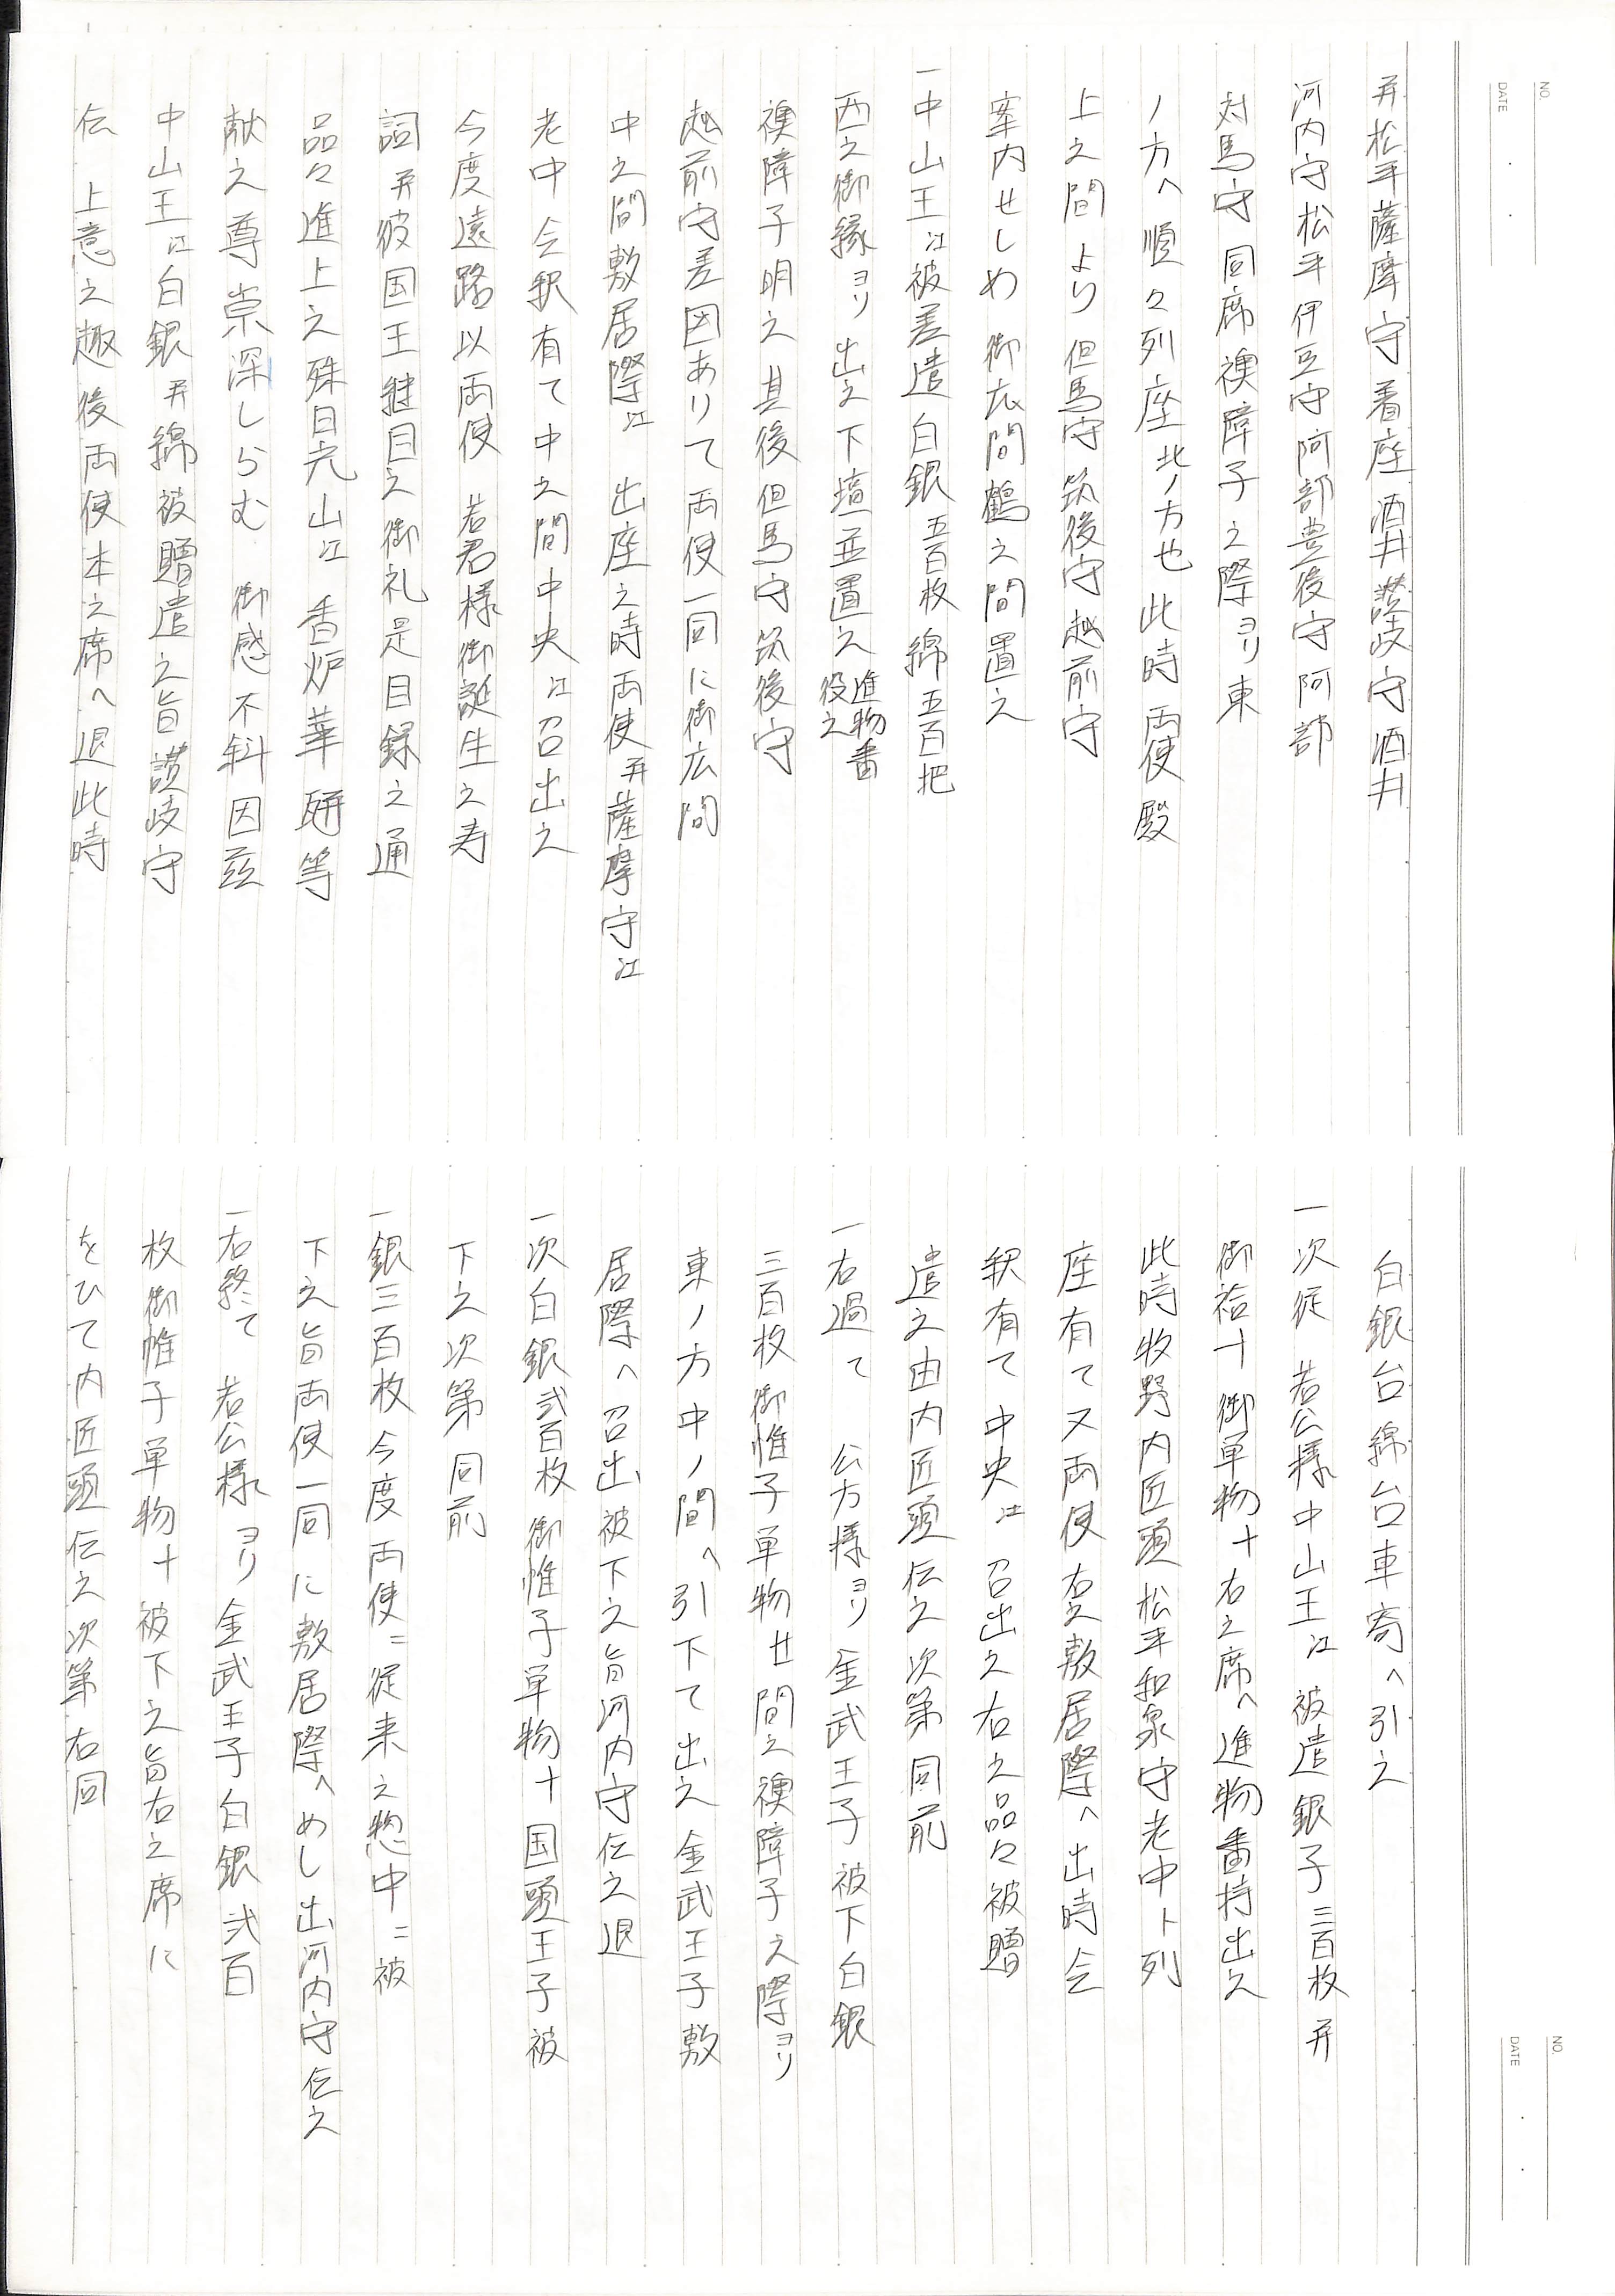 NO.
DATE
幷松平薩摩守着座酒井讃岐守酒井
河内守松平伊豆守阿部豊後守阿部
対馬守同席襖障子之際ヨリ東
ノ方へ順々列座北ノ方也此時両使殿
上之間より但馬守筑後守越前守
案内せしめ御広間鶴之間置之
一中山王江被差遣白銀五百枚綿五百把
西之御縁ヨリ出之下壇並置之進物番役之
襖障子明之其後但馬守筑後守
越前守差図ありて両使一同に御広間
中之間敷居際江 出座之時両使幷薩摩守江
老中会釈有て中之間中央江召出之
今度遠路以両使 若君様御誕生之寿
詞幷彼国王継目之御礼是目録之通
品々進上之殊日光山江香炉華瓶等
献之尊崇深しらむ 御感不斜因茲
中山王江白銀幷綿被贈遣之旨讃岐守
伝 上意之趣後両使本之席へ退此時
NO.
DATE
白銀台綿台車寄へ引之
一次従 若公様中山王江 被遣銀子三百枚幷
御袷十御単物十右之席へ進物番持出之
此時牧野内匠頭松平和泉守老中ト列
座有て又両使右之敷居際へ出時会
釈有て中央江召出之右之品々被贈
遣之由内匠頭伝之次第同前
一右過て 公方様ヨリ金武王子被下白銀
三百枚御惟子単物廿間之襖障子之際ヨリ
東ノ方中ノ間へ引下て出之金武王子敷
居際へ召出被下之旨河内守伝之退
一次白銀弐百枚御惟子単物十国頭王子被
下之次第同前
一銀三百枚今度両使ニ従来之惣中ニ被
下之旨両使一同に敷居際へめし出河内守伝之
一右終て 若公様ヨリ金武王子白銀弐百
枚御帷子単物十被下之旨右之席に
をひて内匠頭伝之次第右同